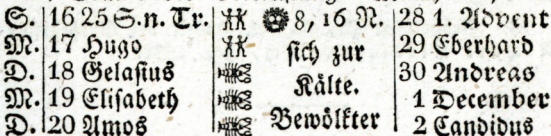 S. 16 25 S. n. Tr. 8, 16 N. 28 1. Advent
M. 17 Hugo sich zur 29 Eberhard
D. 18 Gelasius Kälte. 30 Andreas
M. 19 Elisabeth Bewölkter 1 December
D. 20 Amos 2 Candidus